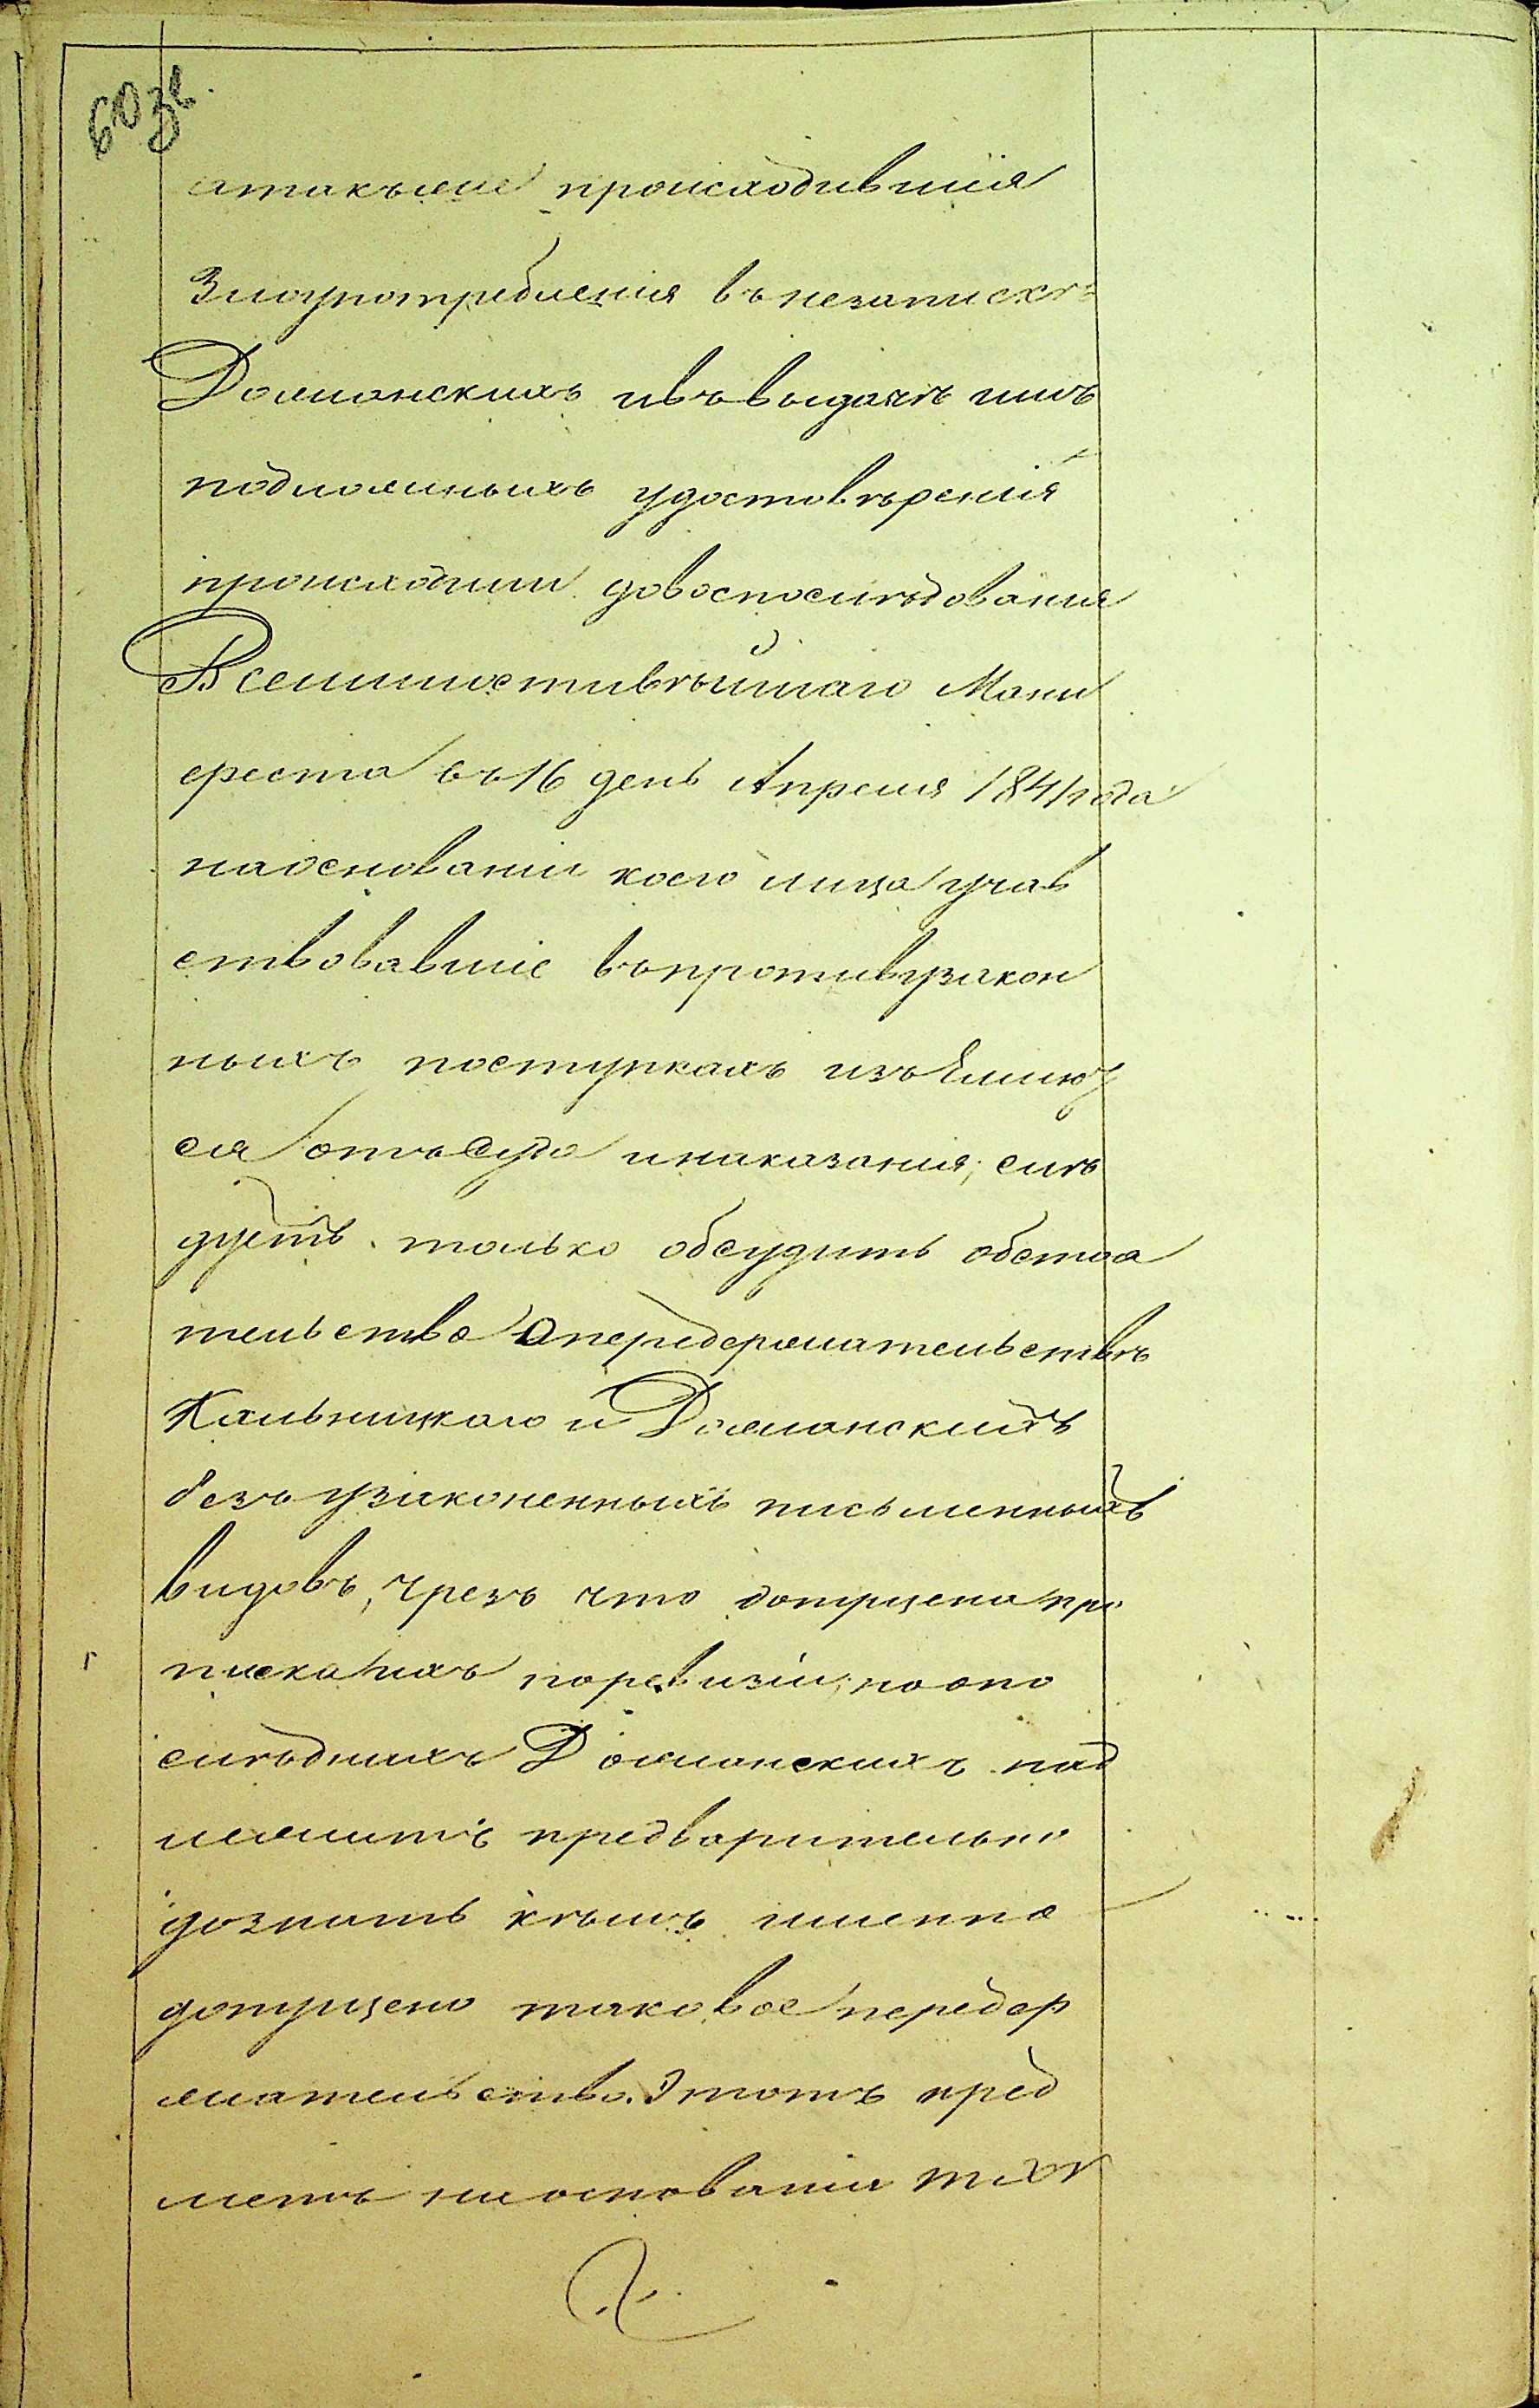 атакъже происходившія
Злоупотребленія въ незапискѣ
Доманскихъ и въ выдачѣ имъ
подложныхъ удостовѣренія
происходили до воспослѣдованія
Всемилостивѣйшаго Мани
феста въ 16 день Апреля 1841 года
на основаніи коего лица учав
ствовавшіе въ противузакон
ныхъ поступкахъ
ся отъ Суда и наказанія; слѣ
дуетъ только обсудить обстоя
тельства о передержательствѣ
Кальницкаго и Доманскихъ
безъ узаконенныхъ письменныхъ
видовъ, чрезъ что допущена про
писка ихъ по ревизіи; но о по
слѣднихъ Доманскихъ над
лежитъ предварительно
дознать кѣмъ именно
допущено таковое передер
жательство. Этотъ пред
метъ на основаніи